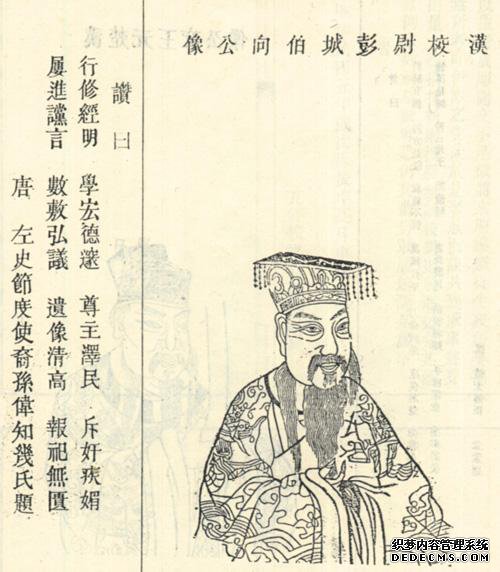 漢校尉彭城伯向公像
讚曰
行修經明 學宏德邃 尊主澤民 斥奸疾媢
屢進讜言 數敷弘議 遺像清高 報祀無匱
唐 左史節度使裔孫偉知幾氏題
织梦内容管理系统
DEDECMS.COM